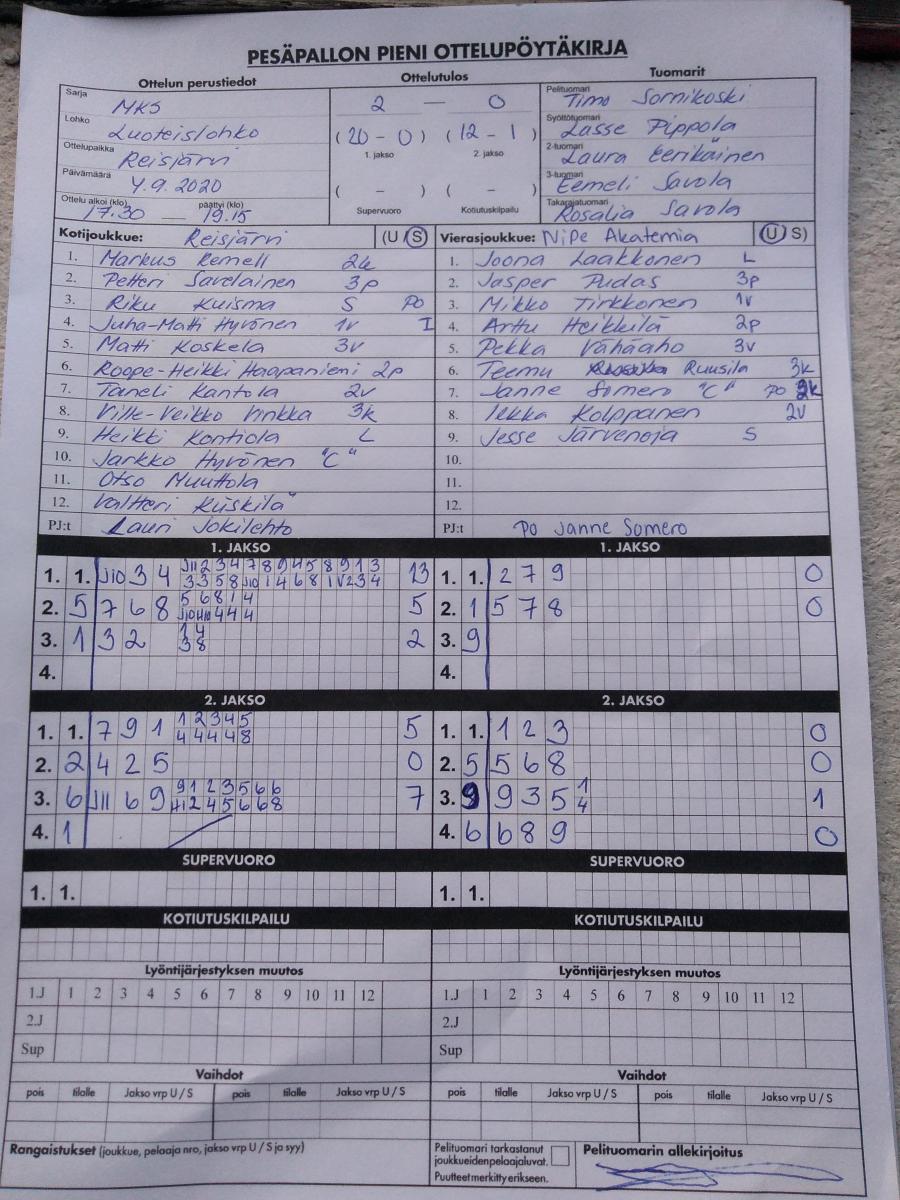 PESÄPALLON PIENI OTTELUPÖYTÄKIRJA
Ottelun perustiedot Ottelutulos Tuomarit
Sarja MKS
Lohko Luoteislohko
Ottelupaikka Reisjärvi
Päivämäärä 4.9.2020
Ottelu alkoi (klo) 17.30 — päättyi (klo) 19.15
2 — 0
(20 - 0) (12 - 1)
1. jakso 2. jakso
( - ) ( - )
Supervuoro Kotiutuskilpailu
Pelituomari Timo Sornikoski
Syöttötuomari Lasse Pippola
2-tuomari Laura Eerikäinen
3-tuomari Eemeli Savola
Takarajatuomari Rosalia Savola
Kotijoukkue: Reisjärvi (U S)
1. Markus Remell 2k
2. Petteri Savelainen 3p
3. Riku Kuisma S PO
4. Juha-Matti Hyvönen 1v I
5. Matti Koskela 3v
6. Roope-Heikki Haapaniemi 2p
7. Taneli Kantola 2v
8. Ville-Veikko Vinkka 3k
9. Heikki Kontiola L
10. Jarkko Hyvönen "C"
11. Otso Muuttola
12. Valtteri Kiiskilä
PJ:t Lauri Jokilehto
Vierasjoukkue: NiPe Akatemia (U S)
1. Joona Laakkonen L
2. Jasper Pudas 3p
3. Mikko Tirkkonen 1v
4. Arttu Heikkilä 2p
5. Pekka Vähäaho 3v
6. Teemu Ruusila 3k
7. Janne Somero "C" PO 2k
8. Iekka Kolppanen 2v
9. Jesse Järvenoja S
10.
11.
12.
PJ:t PO Janne Somero
1. JAKSO 1. JAKSO
1. 1. J10 3 4 J11 2 3 4 7 8 9 4 5 8 9 1 3 13
3 3 5 8 J10 1 4 6 8 1V 2 3 4
2. 5 7 6 8 5 6 8 1 4 5
J10 J10 4 4 4
3. 1 3 2 1 4 2
3 8
4.
1. 1. 2 7 9 0
2. 1 5 7 8 0
3. 9
4.
2. JAKSO 2. JAKSO
1. 1. 7 9 1 1 2 3 4 5 5
4 4 4 4 8
2. 2 4 2 5 0
3. 6 J11 6 9 9 1 2 3 5 6 6 7
J11 2 4 5 6 6 8
4. 1
1. 1. 1 2 3 0
2. 5 5 6 8 0
3. 9 9 3 5 1 1
4
4. 6 6 8 9 0
SUPERVUORO SUPERVUORO
1. 1. 1. 1.
KOTIUTUSKILPAILU KOTIUTUSKILPAILU
Lyöntijärjestyksen muutos Lyöntijärjestyksen muutos
1.J 1 2 3 4 5 6 7 8 9 10 11 12 1.J 1 2 3 4 5 6 7 8 9 10 11 12
2.J 2.J
Sup Sup
Vaihdot Vaihdot
pois tilalle Jakso vrp U / S pois tilalle Jakso vrp U / S pois tilalle Jakso vrp U / S pois tilalle Jakso vrp U / S
Rangaistukset (joukkue, pelaaja nro, jakso vrp U / S ja syy)
Pelituomari tarkastanut
joukkueidenpelaajaluvat.
Puutteet merkitty erikseen.
Pelituomarin allekirjoitus